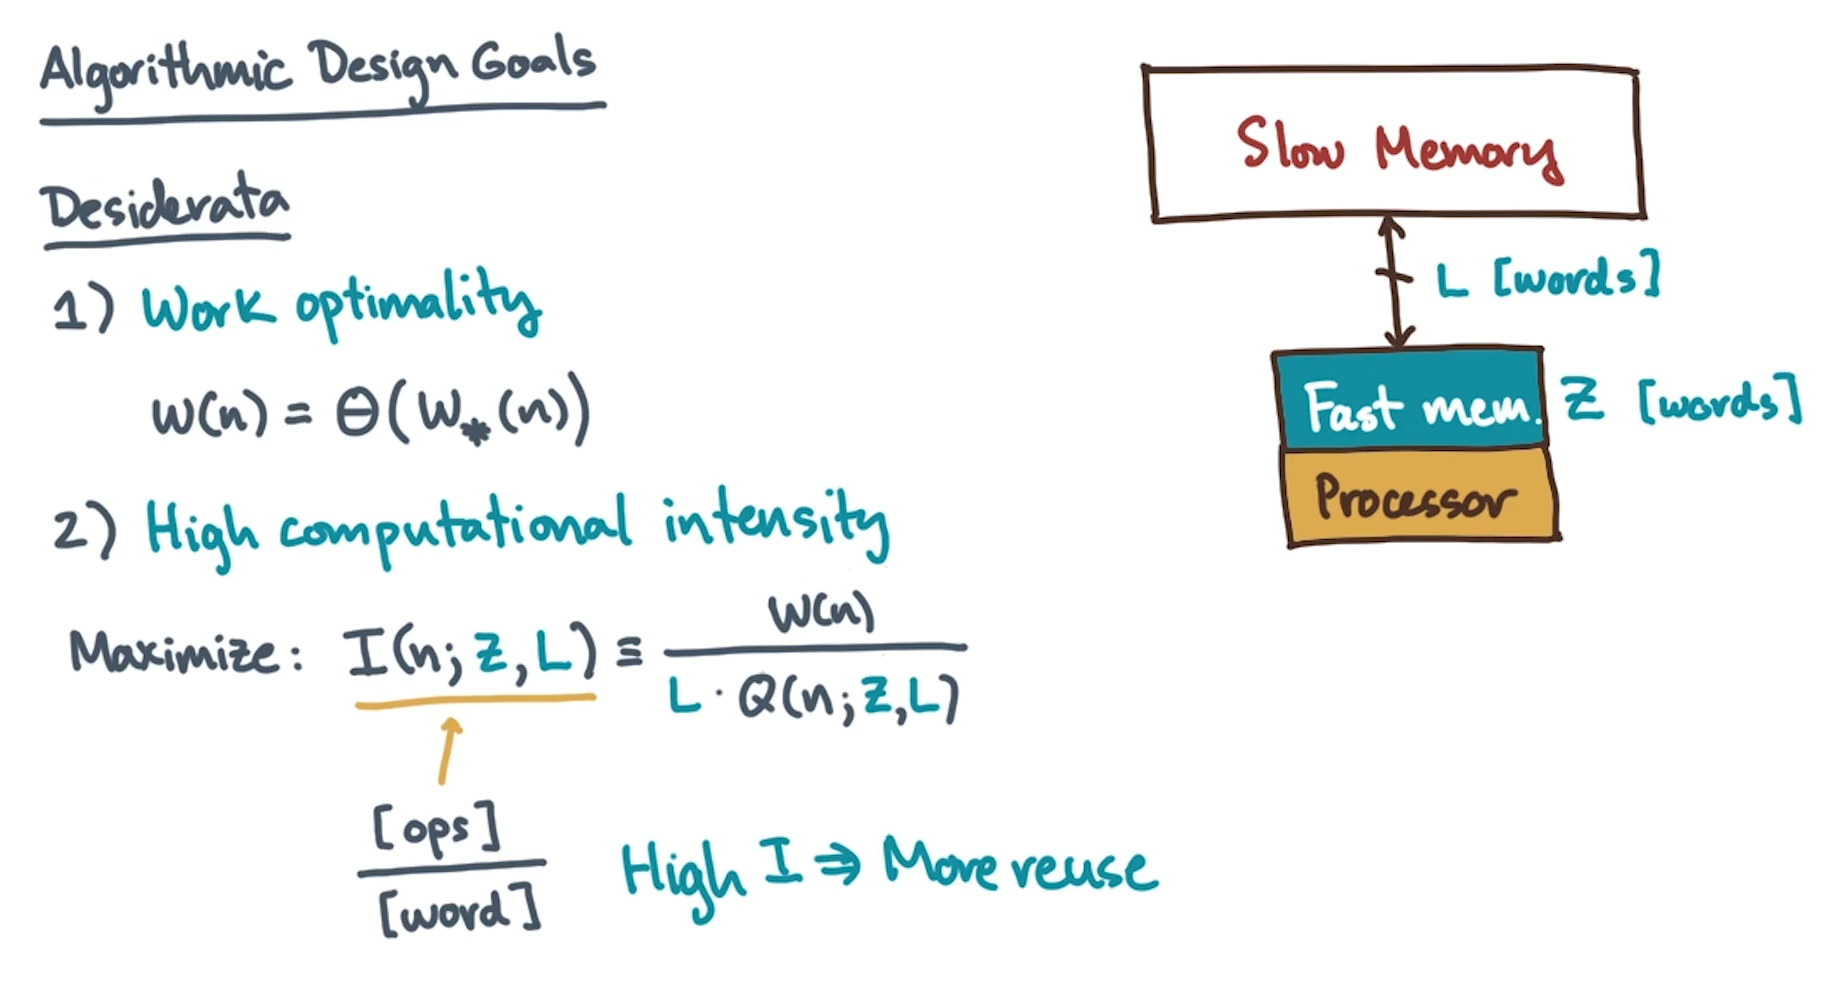 Algorithmic Design Goals
Desiderata
1) Work optimality
W(n) = Θ(W_*(n))
2) High computational intensity
Maximize: I(n; Z, L) ≡ W(n) / L · Q(n; Z, L)
[ops]
[word]
High I ⇒ More reuse
Slow Memory
L [words]
Fast mem. Z [words]
Processor